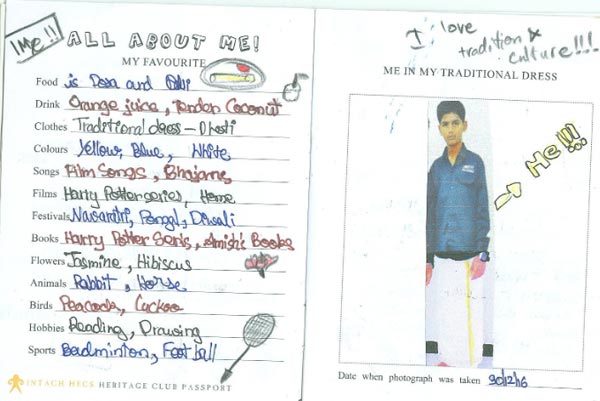 Me!!
ALL ABOUT ME!
MY FAVOURITE
Food is Dosa and Idli
Drink Orange juice, Tender Coconut
Clothes Traditional dress - Dhoti
Colours Yellow, Blue, White
Songs Film Songs, Bhajans
Films Harry Potter series, Home.
Festivals Navaratri, Pongal, Diwali
Books Harry Potter Seris, Amish's Books
Flowers Jasmine, Hibiscus
Animals Rabbit, Horse
Birds Peacock, Cuckoo
Hobbies Reading, Drawing
Sports Badminton, Football
INTACH HECS HERITAGE CLUB PASSPORT
I love
tradition &
culture!!!
ME IN MY TRADITIONAL DRESS
Me!!!
Date when photograph was taken